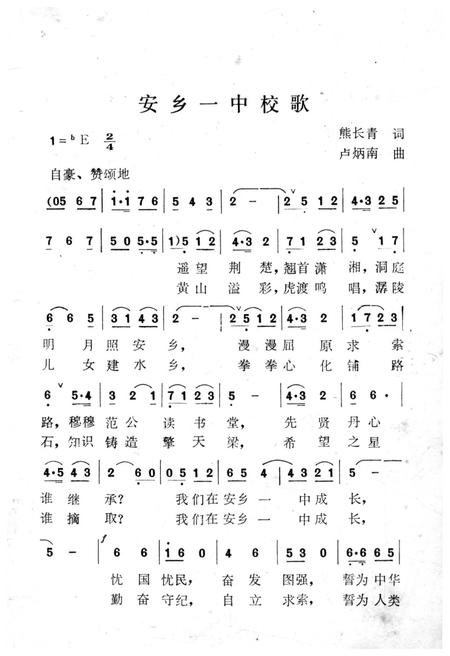 安乡一中校歌
1=ᵇE 2/4
熊长青 词
卢炳南 曲
自豪、赞颂地
(05 6 7 | 1·1 7 6 | 5 4 3 | 2 - | 2 5 1 2 | 4·3 2 5 |
7 6 7 | 5 0 5·5 | 1) 5 1 2 | 4·3 2 | 7 1 2 3 | 5 1 7 |
遥望 荆 楚，翘首潇 湘，洞庭
黄山 溢 彩，虎渡鸣 唱，潺陵
6 6 5 | 3 1 4 3 | 2 - | 2 5 1 2 | 4·3 2 | 1 7 2 3 |
明 月 照 安 乡， 漫 漫 屈 原 求 索
儿 女 建 水 乡， 拳 拳 心 化 铺 路
6 5·4 | 3 2 1 | 7 1 2 1 | 5 - | 4·3 2 1 | 6 6· |
路，穆穆 范 公 读 书 堂， 先 贤 丹 心
石，知识 铸 造 擎 天 梁， 希 望 之 星
4·5 4 3 | 2 6 0 | 0 5 1 2 | 6 5 4 | 5·4 3 2 | 1 2 |
谁 继 承？ 我们在安乡 一 中成 长，
谁 摘 取？ 我们在安乡 一 中成 长，
5 - | 6 6 | 1 6 0 | 4 2 | 5 3 0 | 6·6 6 5 |
忧 国 忧民， 奋 发 图强， 誓为 中华
勤 奋 守纪， 自 立 求索， 誓为 人类